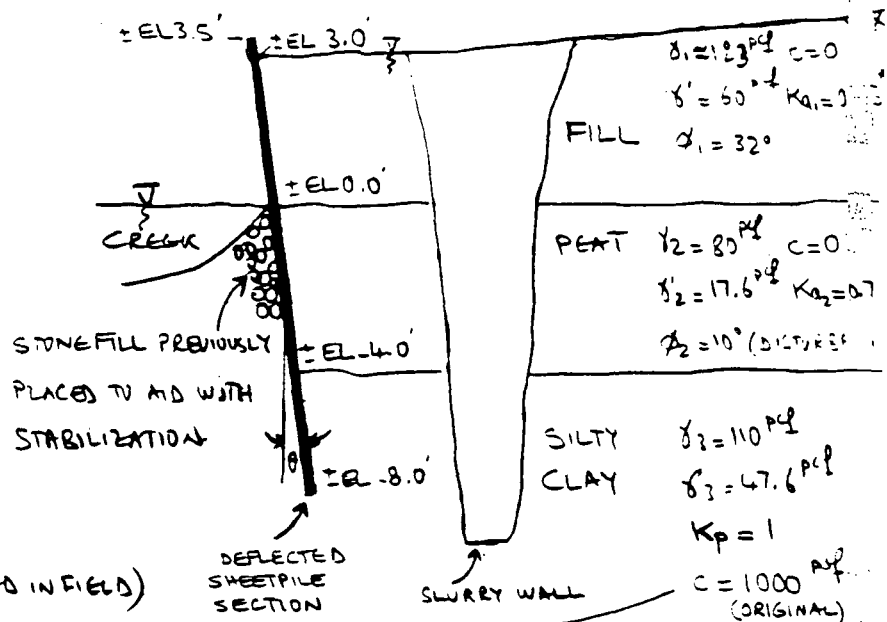 ± EL 3.5'
± EL 3.0'
γ₁ ≃ 123 pcf c = 0
γ' = 60 pcf Ka₁ =
FILL
ø₁ = 32°
± EL 0.0'
CREEK
PEAT
γ₂ = 80 pcf c = 0
γ'₂ = 17.6 pcf Ka₂ = 0.7
ø₂ = 10°
STONEFILL PREVIOUSLY
PLACED TO AID WITH
STABILIZATION
± EL -4.0'
SILTY
CLAY
γ₃ = 110 pcf
γ₃ = 47.6 pcf
θ
± EL -8.0'
Kp = 1
D IN FIELD)
DEFLECTED
SHEETPILE
SECTION
SLURRY WALL
c = 1000
(ORIGINAL)